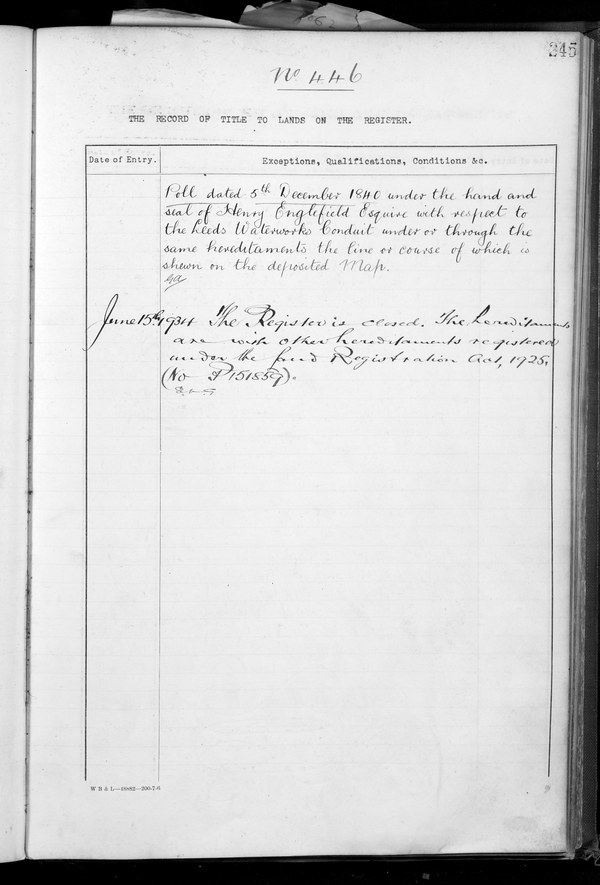 245
No 446
THE RECORD OF TITLE TO LANDS ON THE REGISTER.
Date of Entry.
Exceptions, Qualifications, Conditions &c.
Poll dated 5th December 1840 under the hand and
seal of Henry Englefield Esquire with respect to
the Leeds Waterworks Conduit under or through the
same hereditaments the line or course of which is
shewn on the deposited Map.
June 15th 1934 The Register is closed. The hereditaments
are with other hereditaments registered
under the Land Registration Act, 1925.
(No P151859).
W B & L—49882—200-7-6